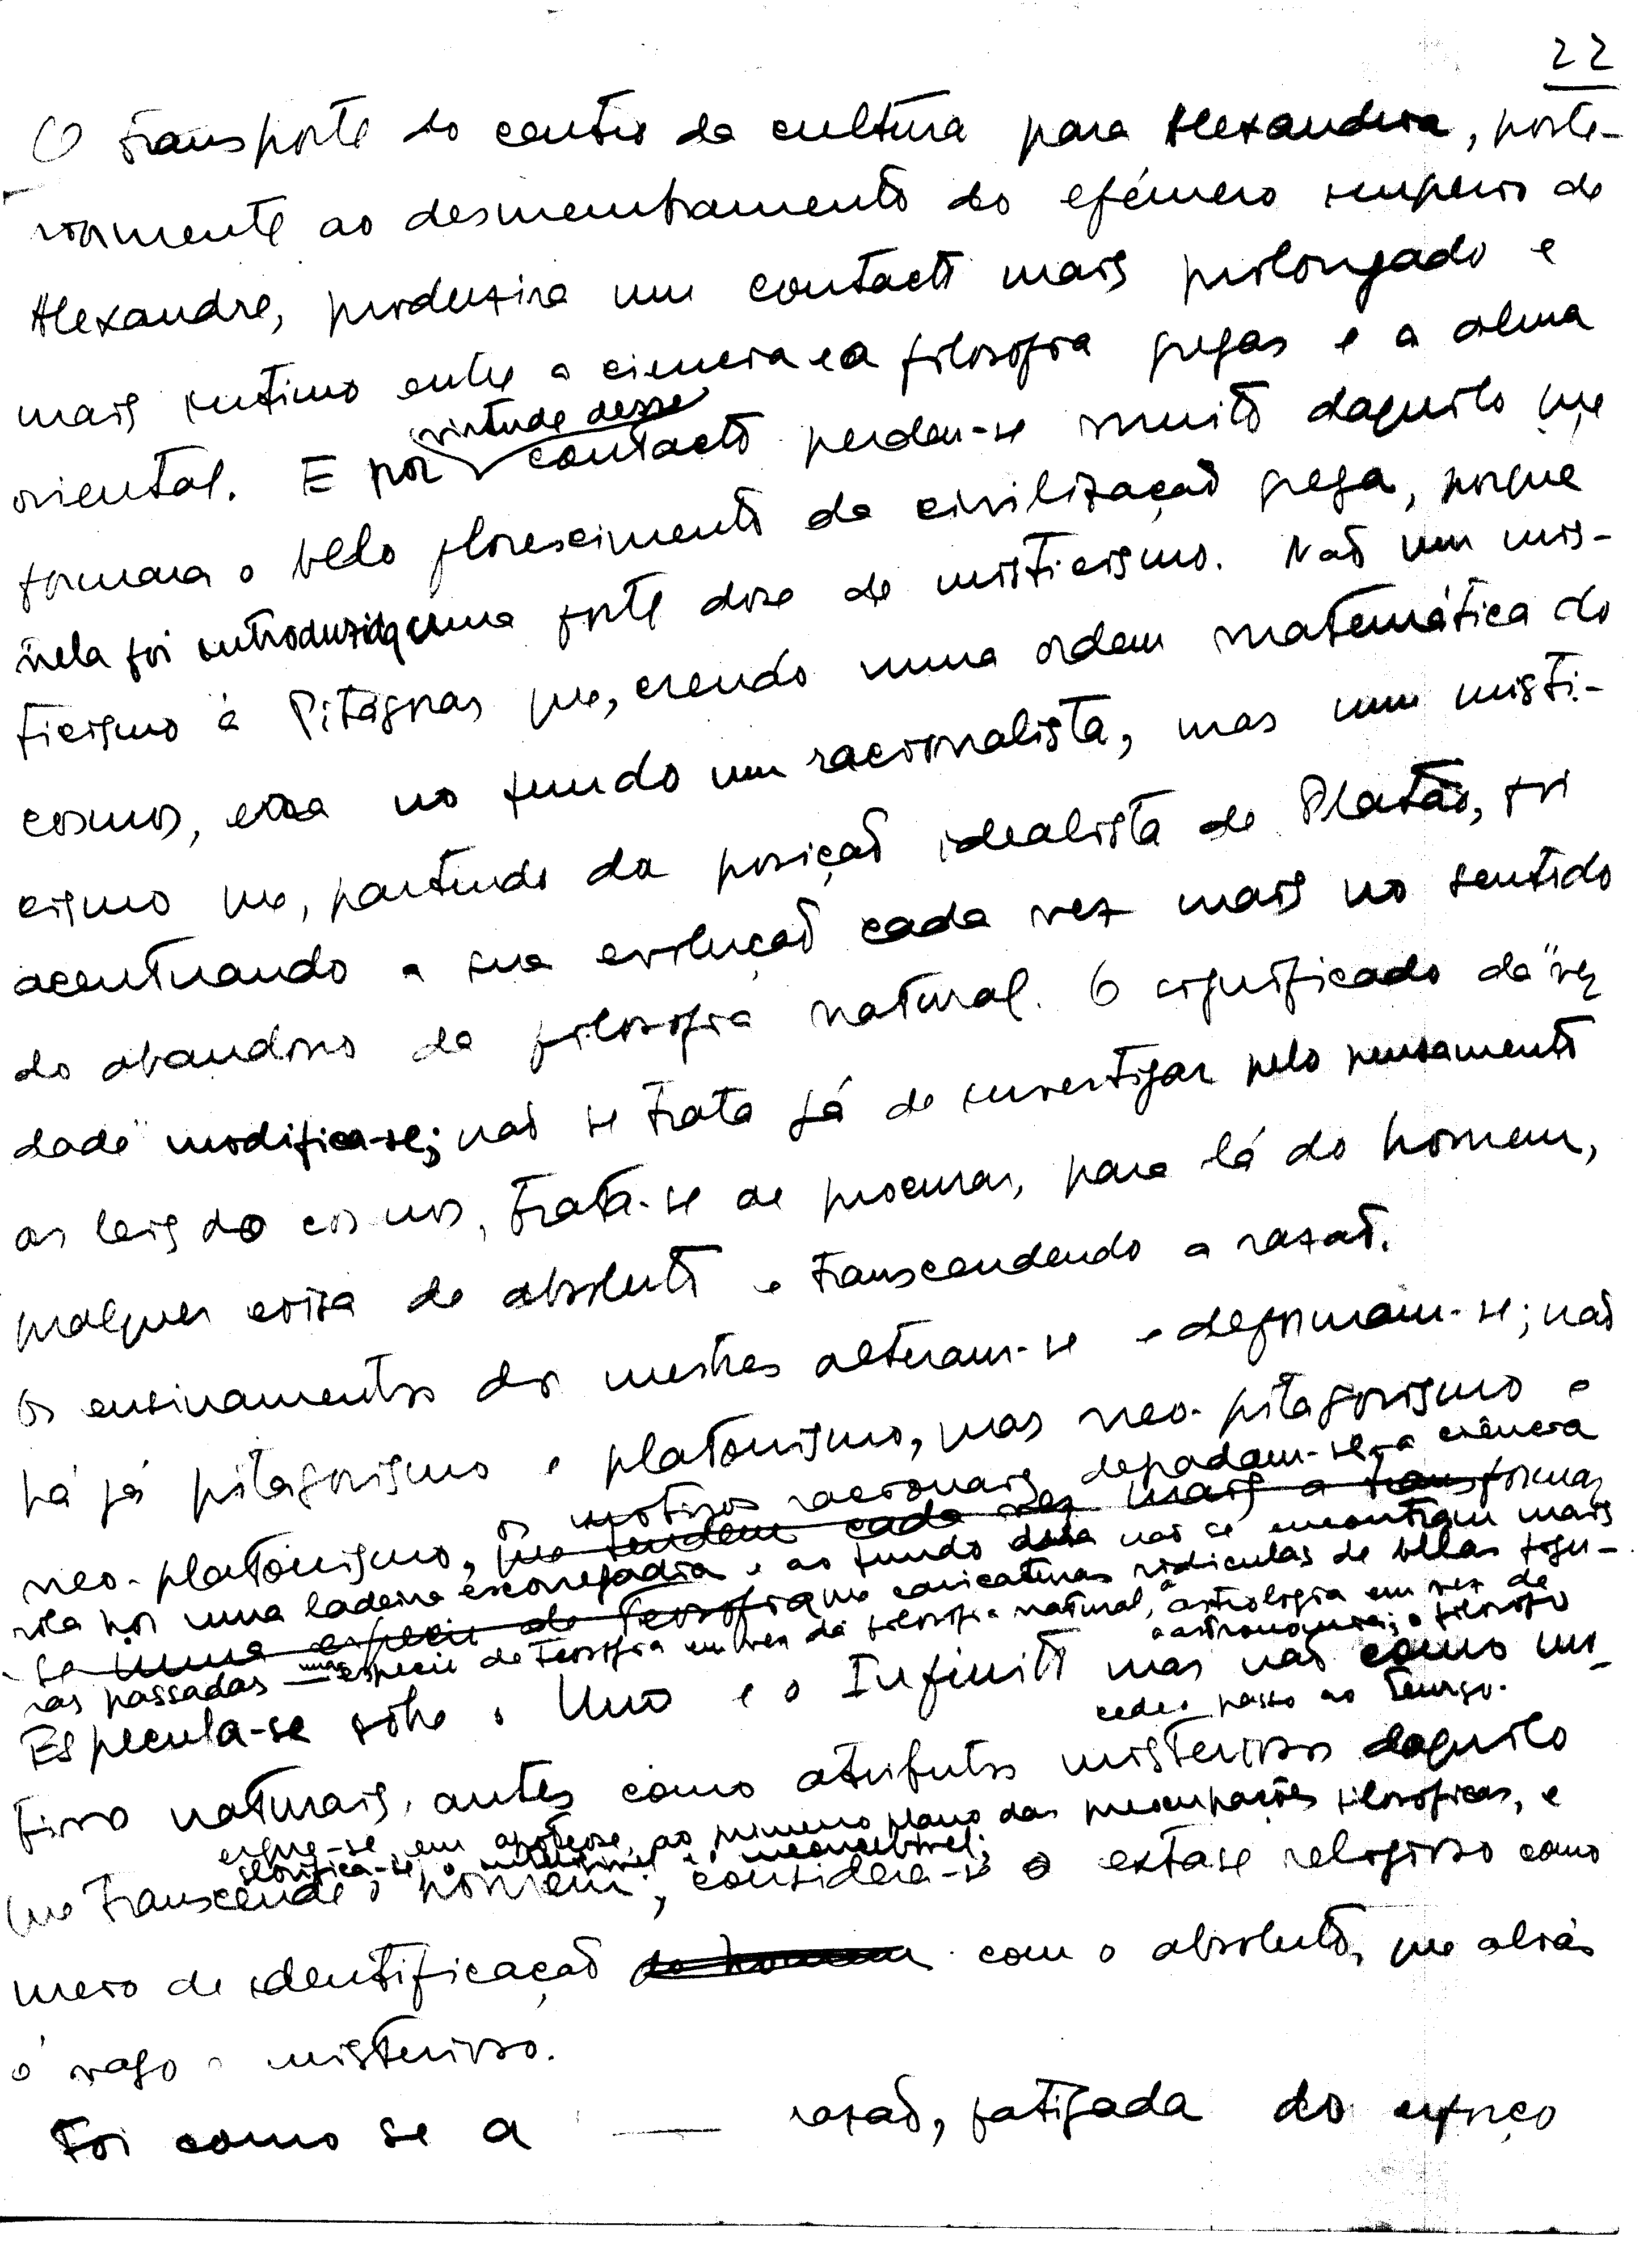 22
O transporte do centro da cultura para Alexandria, poste-
riormente ao desmembramento do efémero império de
Alexandre, produzira um contacto mais prolongado e
mais íntimo entre a ciencia e a filosofia gregas e a alma
virtude desse
oriental. E por contacto perdeu-se muito daquilo que
formara o belo florescimento da civilização grega, porque
nela foi introduzida uma forte dose de misticismo. Não um mis-
ticismo à Pitágoras que, crendo numa ordem matemática do
cosmos, era no fundo um racionalista, mas um misti-
cismo que, partindo da posição idealista de Platão, foi
acentuando a sua evolução cada vez mais no sentido
do abandono da filosofia natural. O significado da "ver
dade" modifica-se; não se trata já de investigar pelo pensamento
as leis do cosmos, trata-se de procurar, para lá do homem,
qualquer coisa de absoluto e transcendendo a razão.
Os ensinamentos dos mestres alteram-se e deformam-se; não
há já pitagorismo e platonismo, mas neo-pitagorismo e
os motivos racionais degradam-se, a ciência
neo-platonismo, que tendem cada vez mais a transformar
rola por uma ladeira escorregadia e ao fundo dela não se encontram mais
-se numa espécie de Teosofia que caricaturas ridiculas de belas figu-
ras passadas — uma especie de Teosofia em vez da filosofia natural, a astrologia em vez da
astronomia; o filósofo
Especula-se sobre o Uno e o Infinito mas não como mo-
cede o passo ao Teurgo.
tivos naturais, antes como atributos misteriosos daquilo
ergue-se, em apoteose, ao primeiro plano das preocupações filosóficas, e
glorifica-se, o e o inconcebível;
que transcende o homem; considera-se o extase religioso como
meio de identificação do homem com o absoluto, que aliás
é vago e misterioso.
Foi como se a — razão, fatigada do esforço